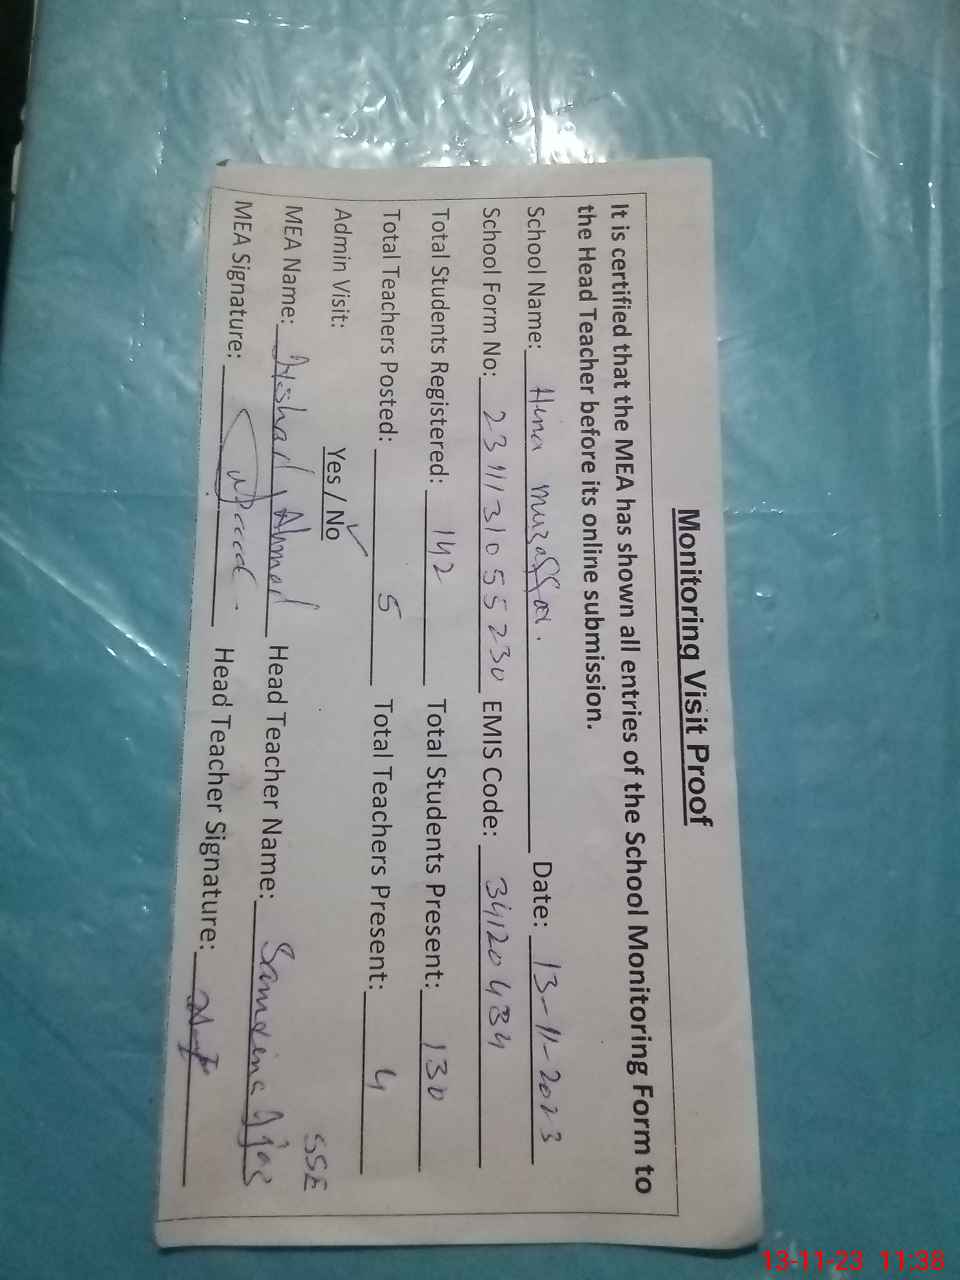 Monitoring Visit Proof
It is certified that the MEA has shown all entries of the School Monitoring Form to
the Head Teacher before its online submission.
School Name: Hina muzaffar. Date: 13-11-2023
School Form No: 2311131055230 EMIS Code: 34120434
Total Students Registered: 142 Total Students Present: 130
Total Teachers Posted: 5 Total Teachers Present: 4
Admin Visit: Yes / No ✓ SSE
MEA Name: Ahmad Head Teacher Name: Sameena Ijaz
MEA Signature: Head Teacher Signature:
13-11-23 11:38